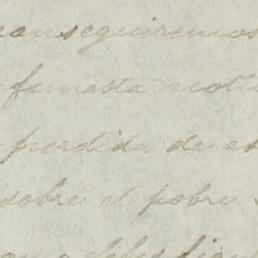 conseguiremos
funesta noti
perdida de es
sobre el pobre